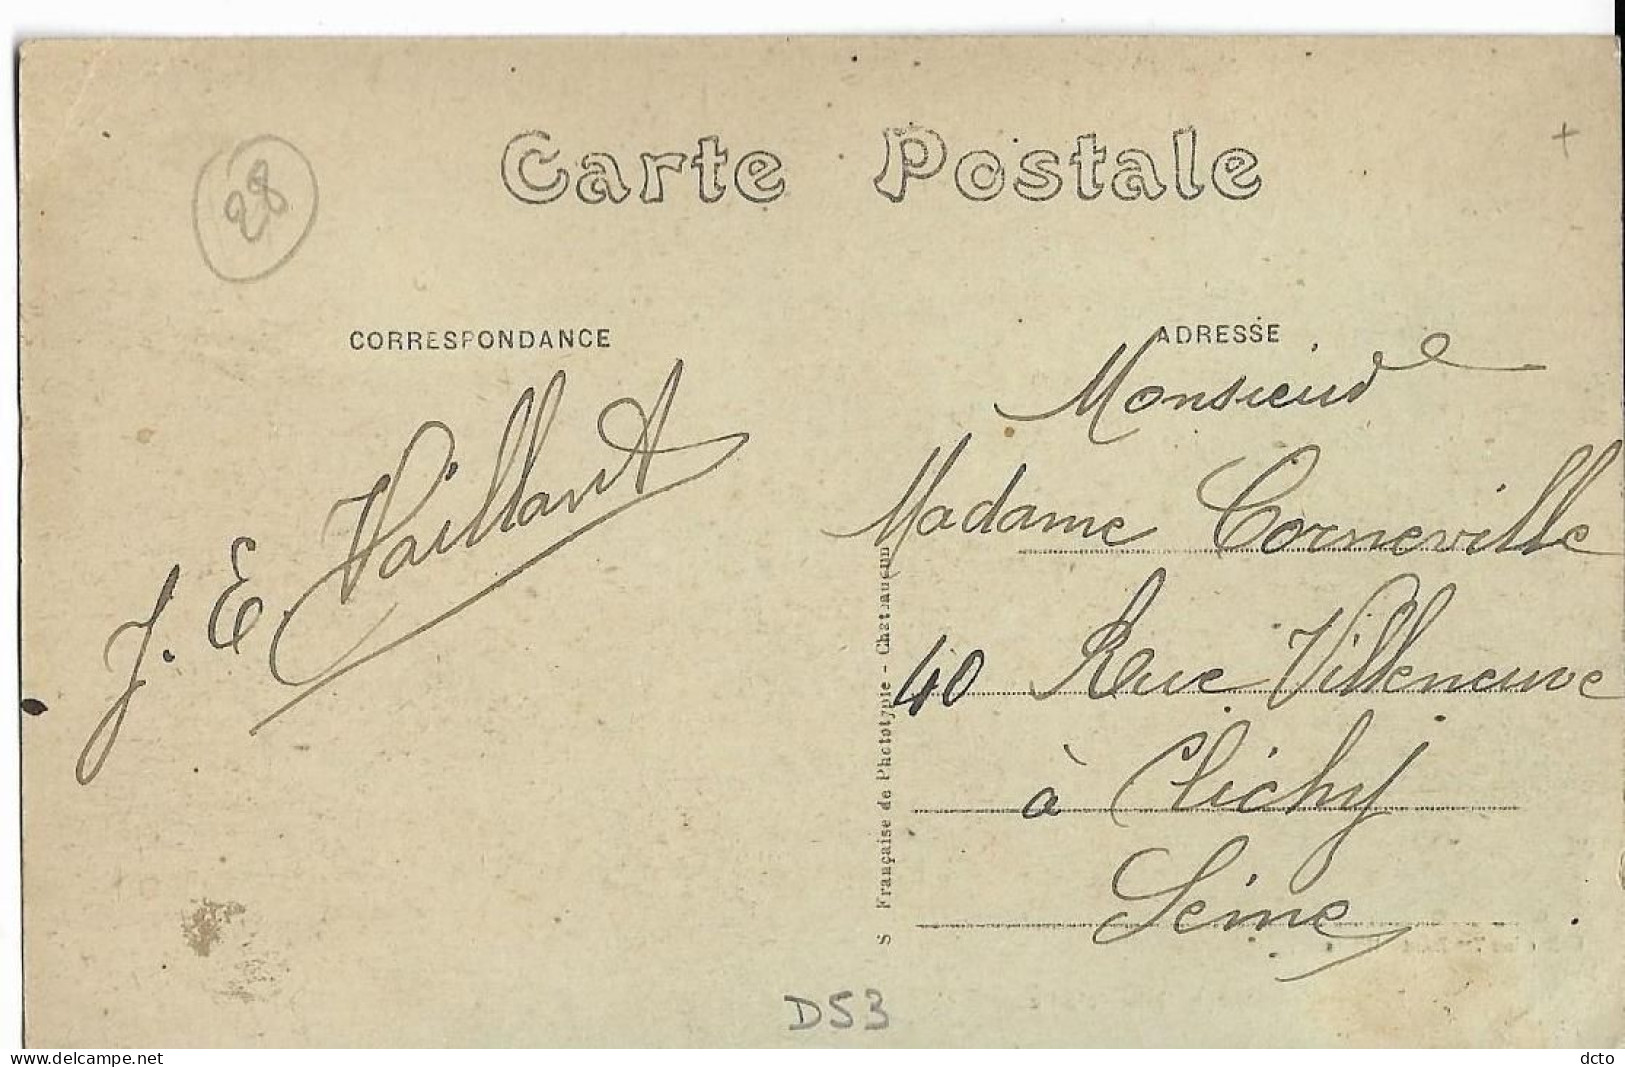 Carte Postale
28
+
CORRESPONDANCE
J. E. Vaillant
ADRESSE
Monsieur
Madame Corneville
40 Rue Villeneuve
à Clichy
Seine
S Française de Phototypie - Chateaudun
D53
www.delcampe.net
dcto